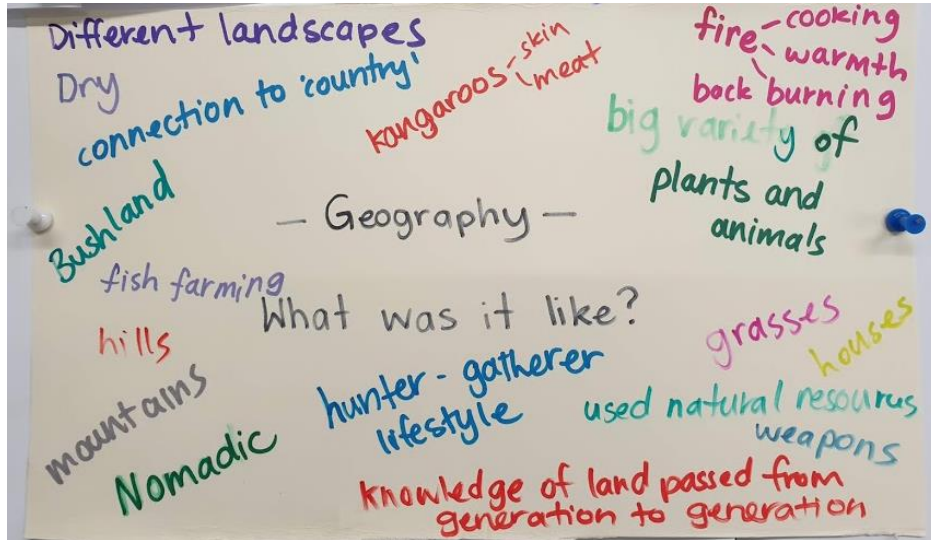 Different landscapes
Dry
connection to 'country'
kangaroos - skin
meat
fire - cooking
warmth
back burning
big variety of
plants and
animals
Bushland
- Geography -
fish farming
What was it like?
hills
mountains
Nomadic
hunter - gatherer
lifestyle
grasses
houses
used natural resources
weapons
knowledge of land passed from
generation to generation